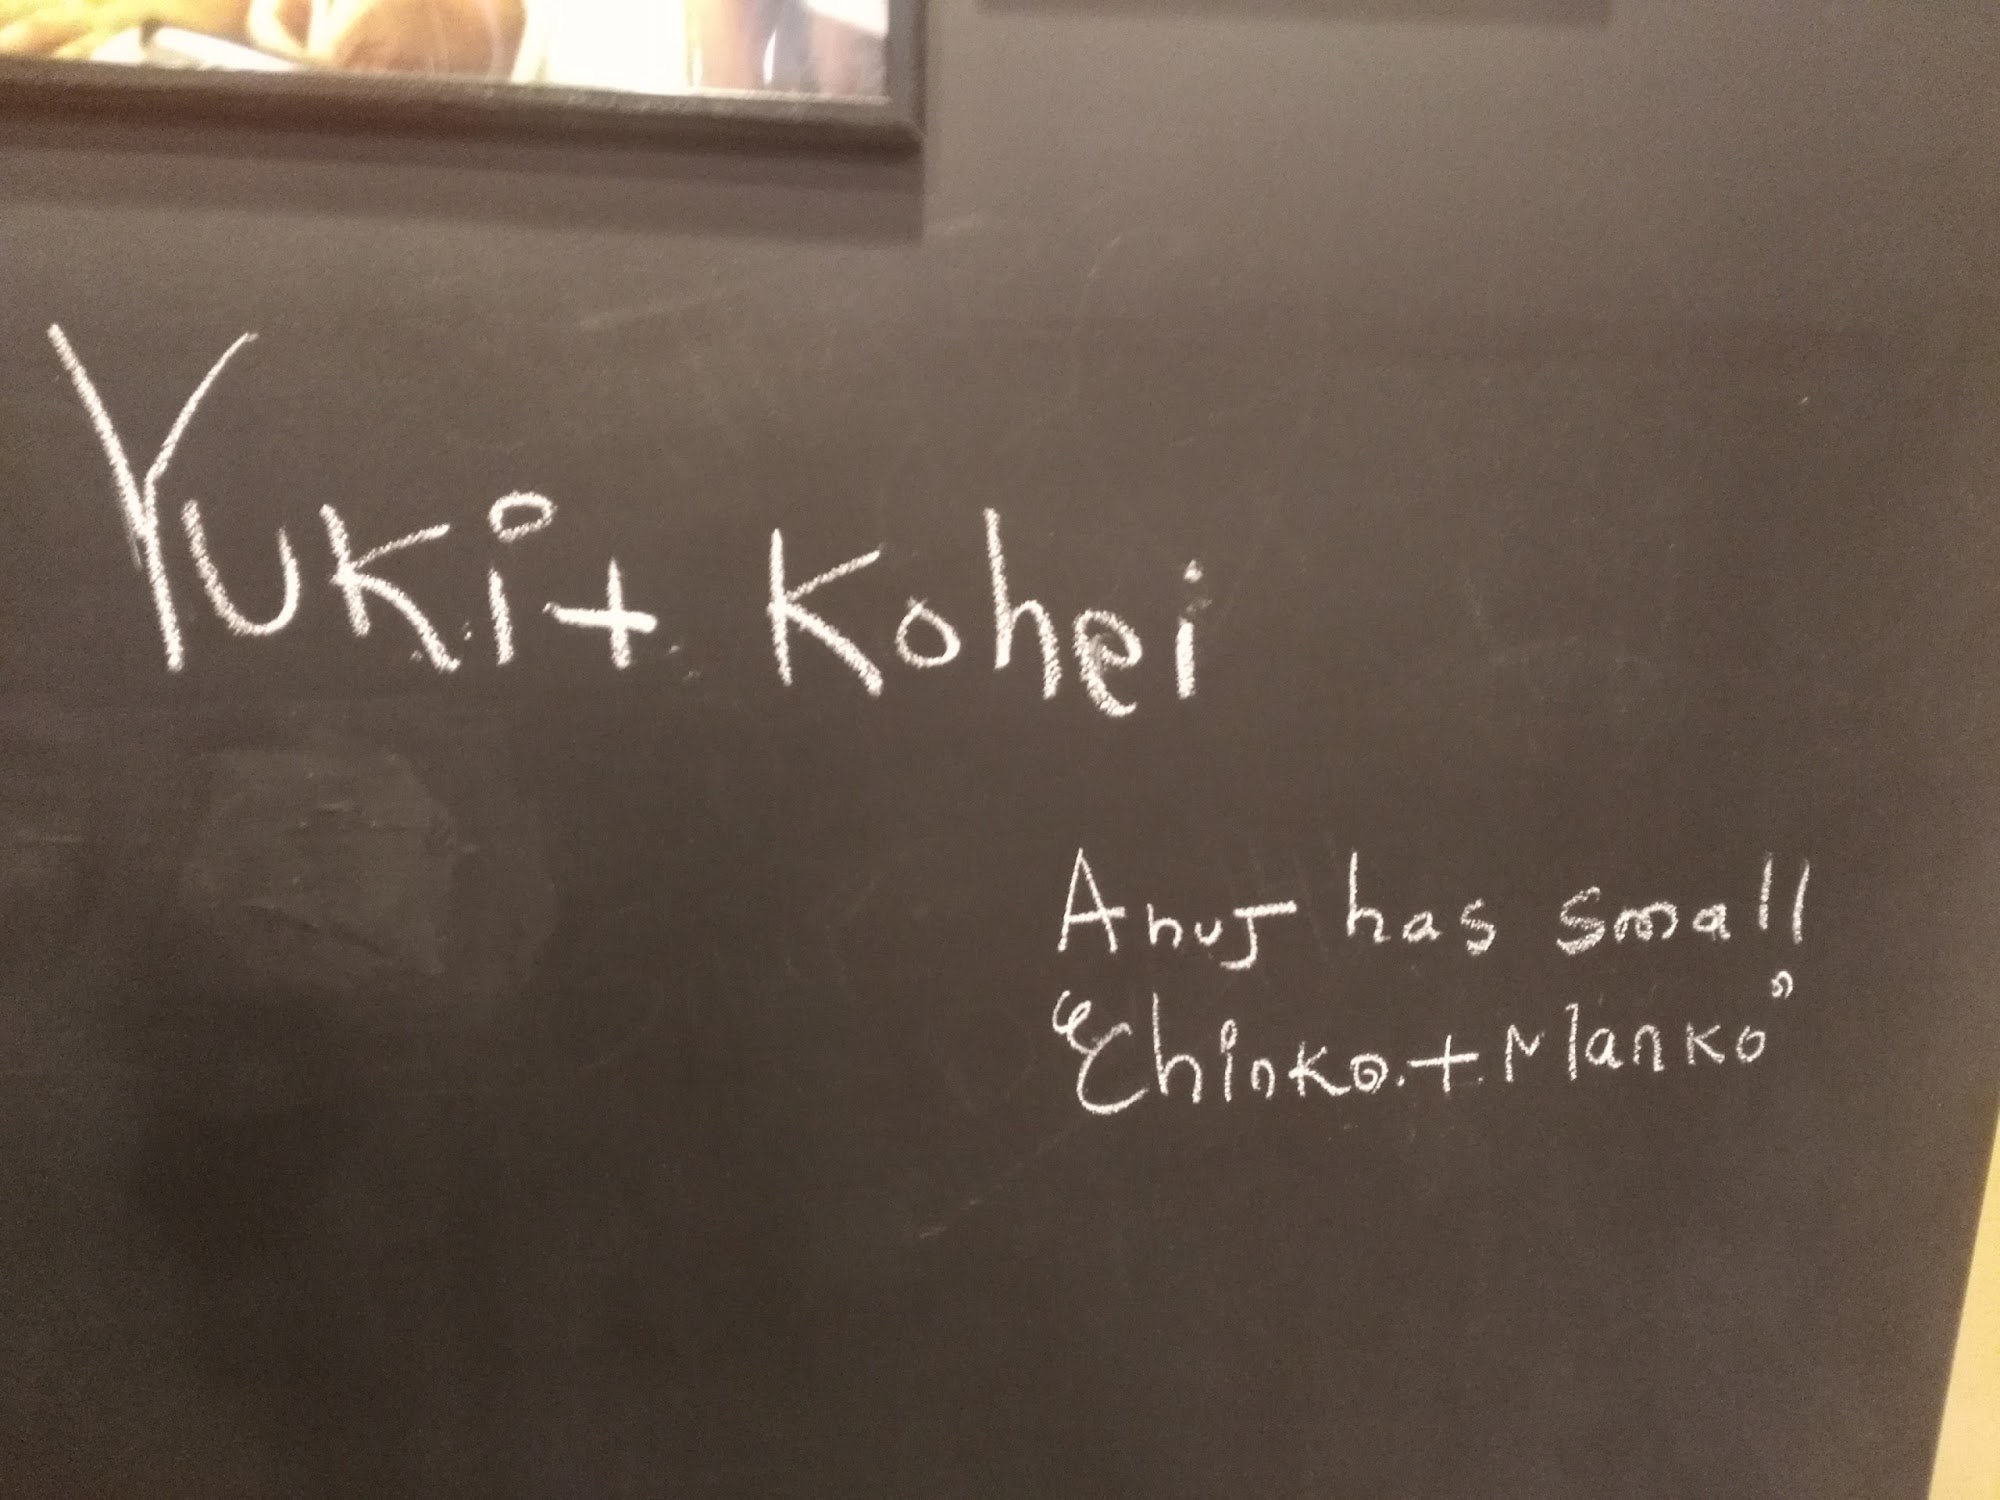 Yuki + Kohei
Anuj has small
"Chinko. + Manko"